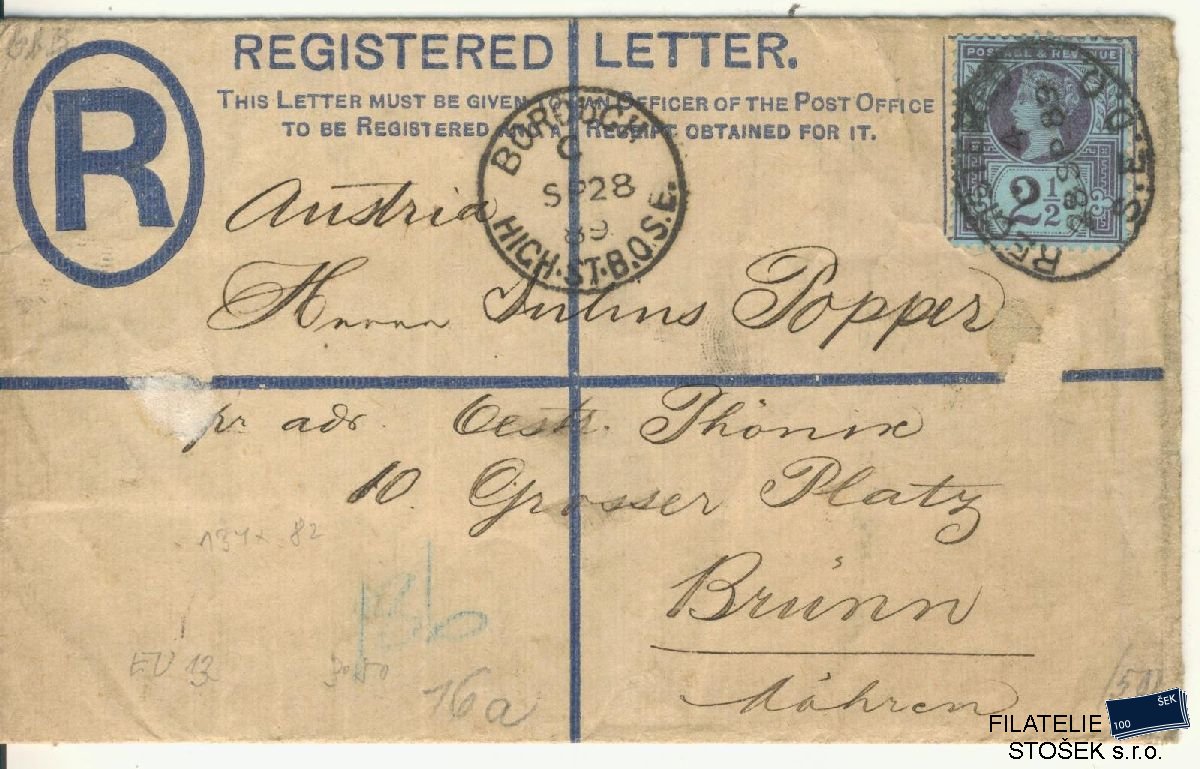 REGISTERED LETTER.
R
THIS LETTER MUST BE GIVEN TO AN OFFICER OF THE POST OFFICE
TO BE REGISTERED AND A RECEIPT OBTAINED FOR IT.
POSTAGE & REVENUE
2 1/2
BOROUGH
C
SP 28
89
HIGH·ST·B.O.S.E.
Austria
Herrn Julius Popper
pr adr. Oestr. Phönix
10 Grosser Platz
Brünn
Mähren
137 x 82
EU 13
16a
FILATELIE
STOŠEK s.r.o.
100 ŠEK